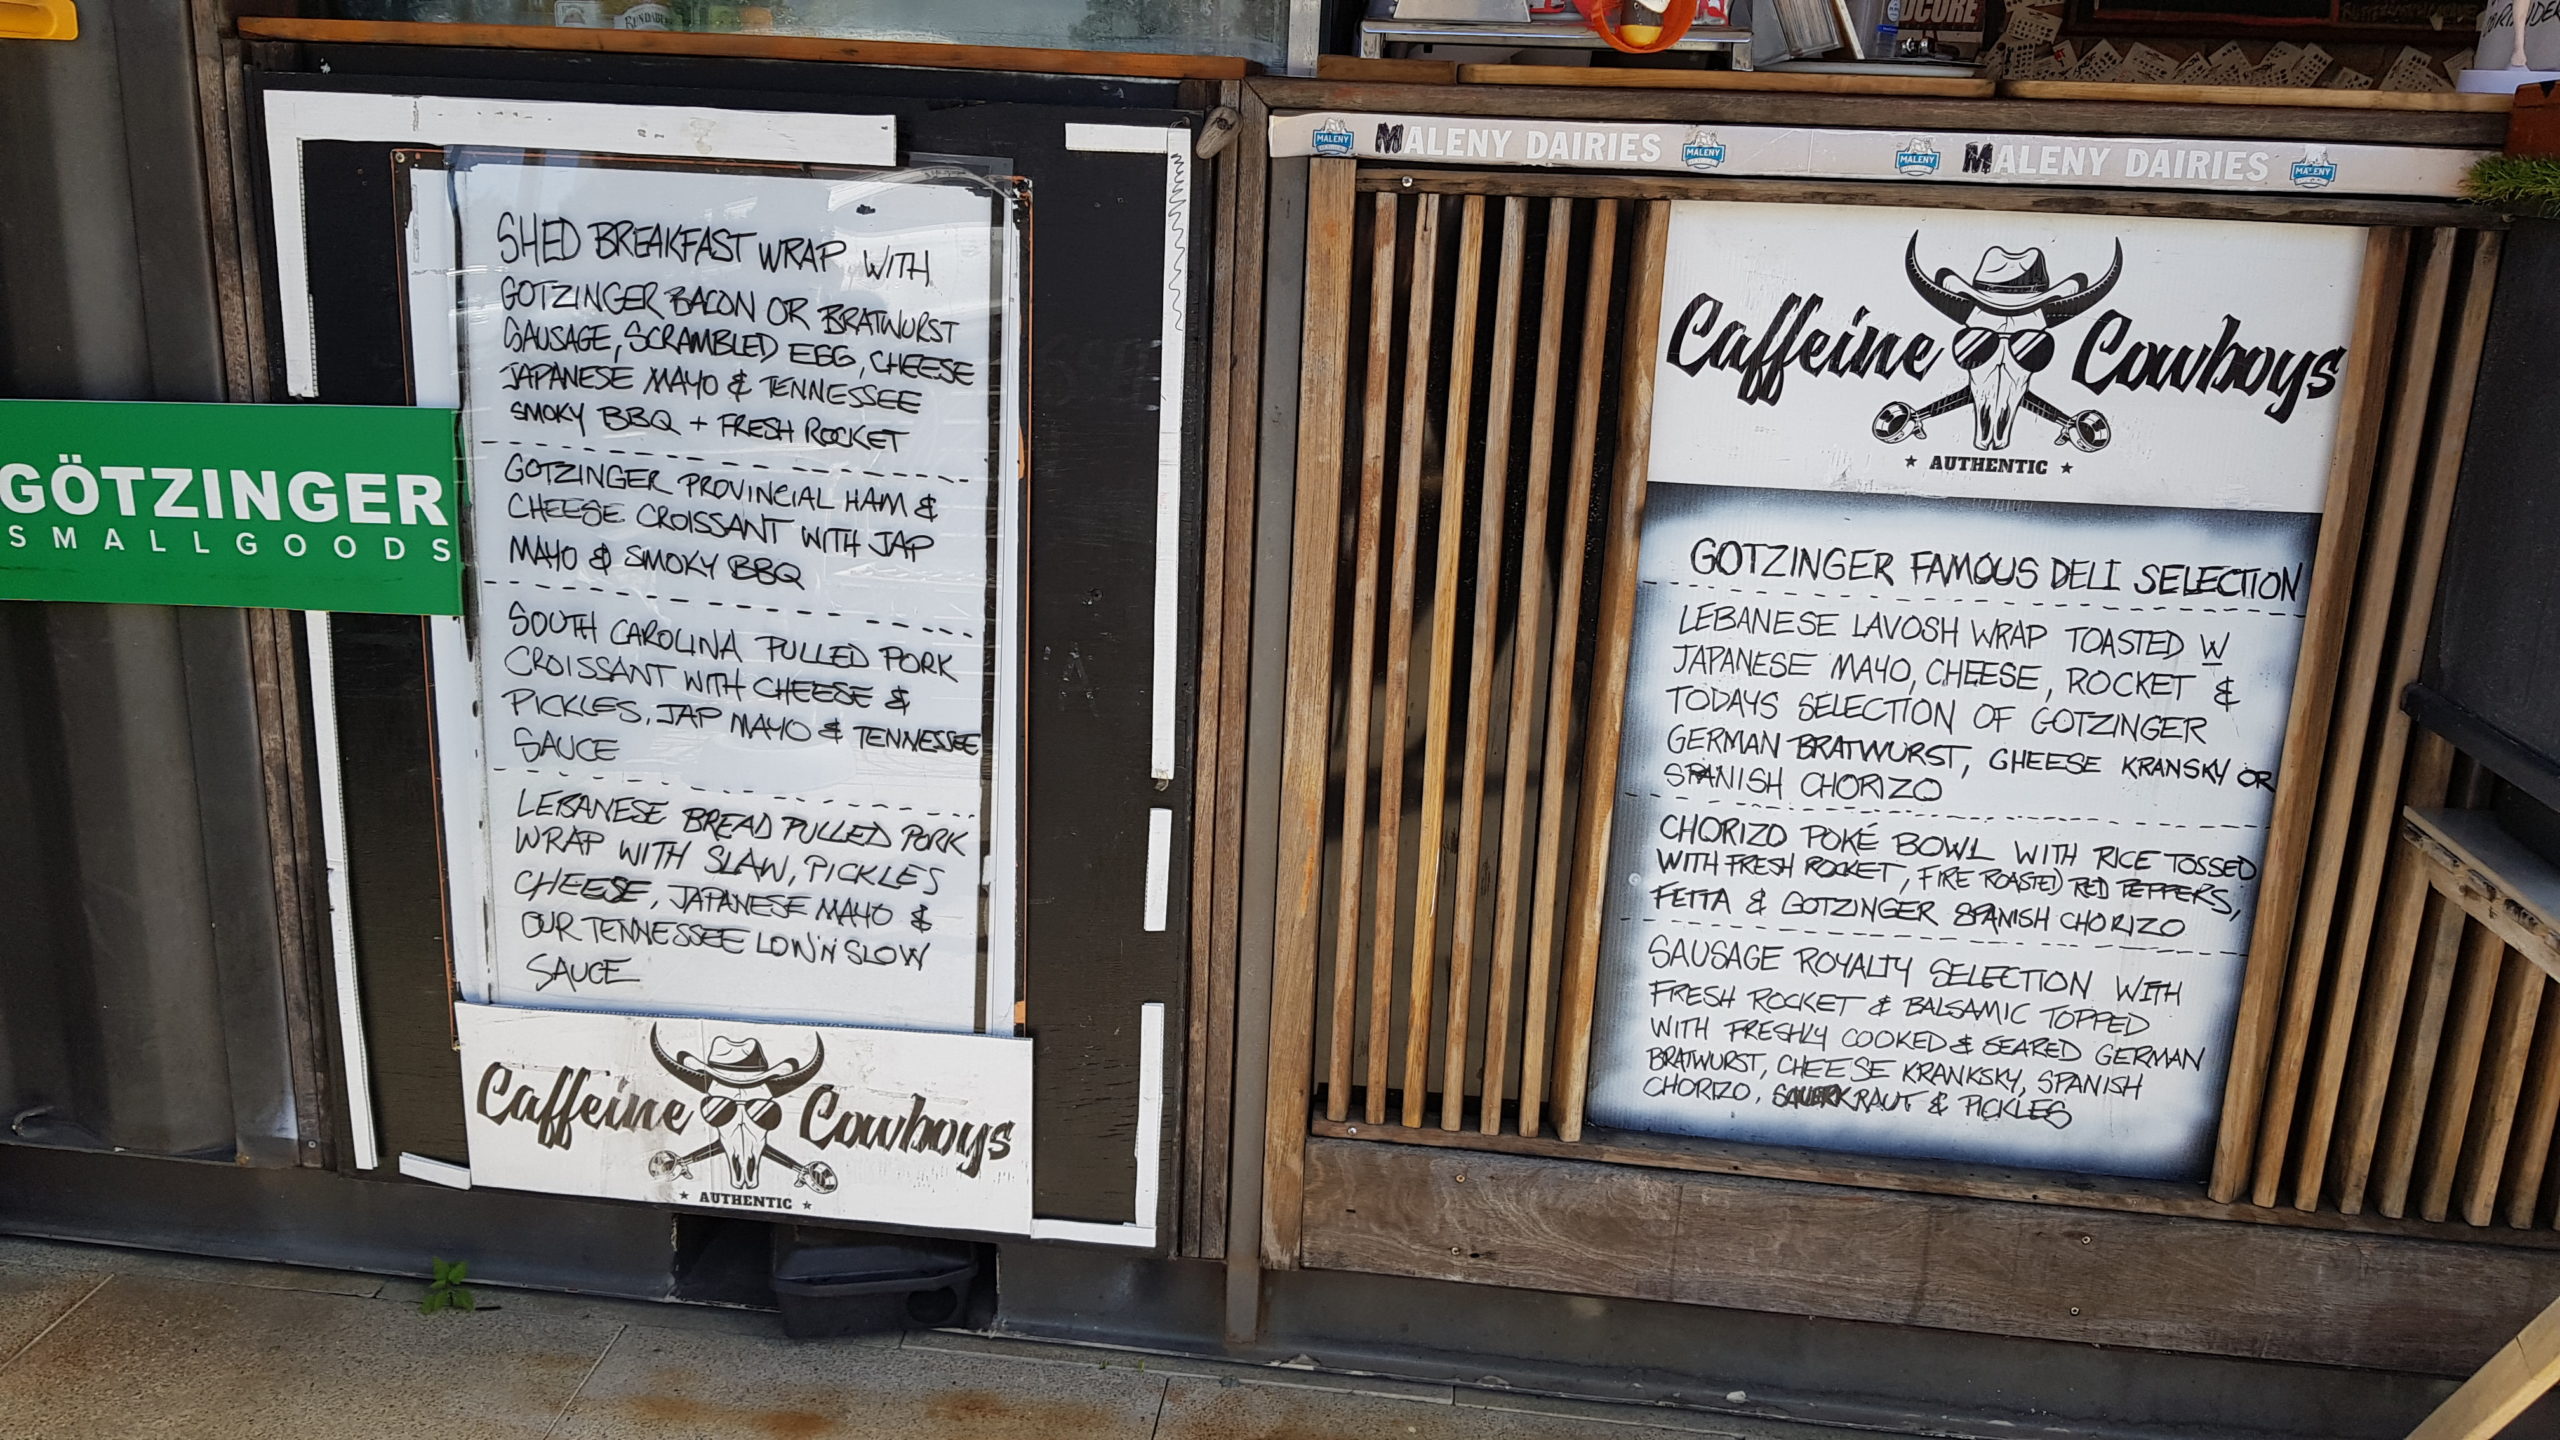 GÖTZINGER
SMALLGOODS
SHED BREAKFAST WRAP WITH
GOTZINGER BACON OR BRATWURST
SAUSAGE, SCRAMBLED EGG, CHEESE
JAPANESE MAYO & TENNESSEE
SMOKY BBQ + FRESH ROCKET
GOTZINGER PROVINCIAL HAM &
CHEESE CROISSANT WITH JAP
MAYO & SMOKY BBQ
SOUTH CAROLINA PULLED PORK
CROISSANT WITH CHEESE &
PICKLES, JAP MAYO & TENNESSEE
SAUCE
LEBANESE BREAD PULLED PORK
WRAP WITH SLAW, PICKLES
CHEESE, JAPANESE MAYO &
OUR TENNESSEE LOW'N SLOW
SAUCE
Caffeine Cowboys
AUTHENTIC
DCORE
MALENY MALENY DAIRIES MALENY MALENY MALENY DAIRIES MALENY
Caffeine Cowboys
AUTHENTIC
GOTZINGER FAMOUS DELI SELECTION
LEBANESE LAVOSH WRAP TOASTED W
JAPANESE MAYO, CHEESE, ROCKET &
TODAYS SELECTION OF GOTZINGER
GERMAN BRATWURST, CHEESE KRANSKY OR
SPANISH CHORIZO
CHORIZO POKÉ BOWL WITH RICE TOSSED
WITH FRESH ROCKET, FIRE ROASTED RED PEPPERS,
FETTA & GOTZINGER SPANISH CHORIZO
SAUSAGE ROYALTY SELECTION WITH
FRESH ROCKET & BALSAMIC TOPPED
WITH FRESHLY COOKED & SEARED GERMAN
BRATWURST, CHEESE KRANKSKY, SPANISH
CHORIZO, SAUERKRAUT & PICKLES